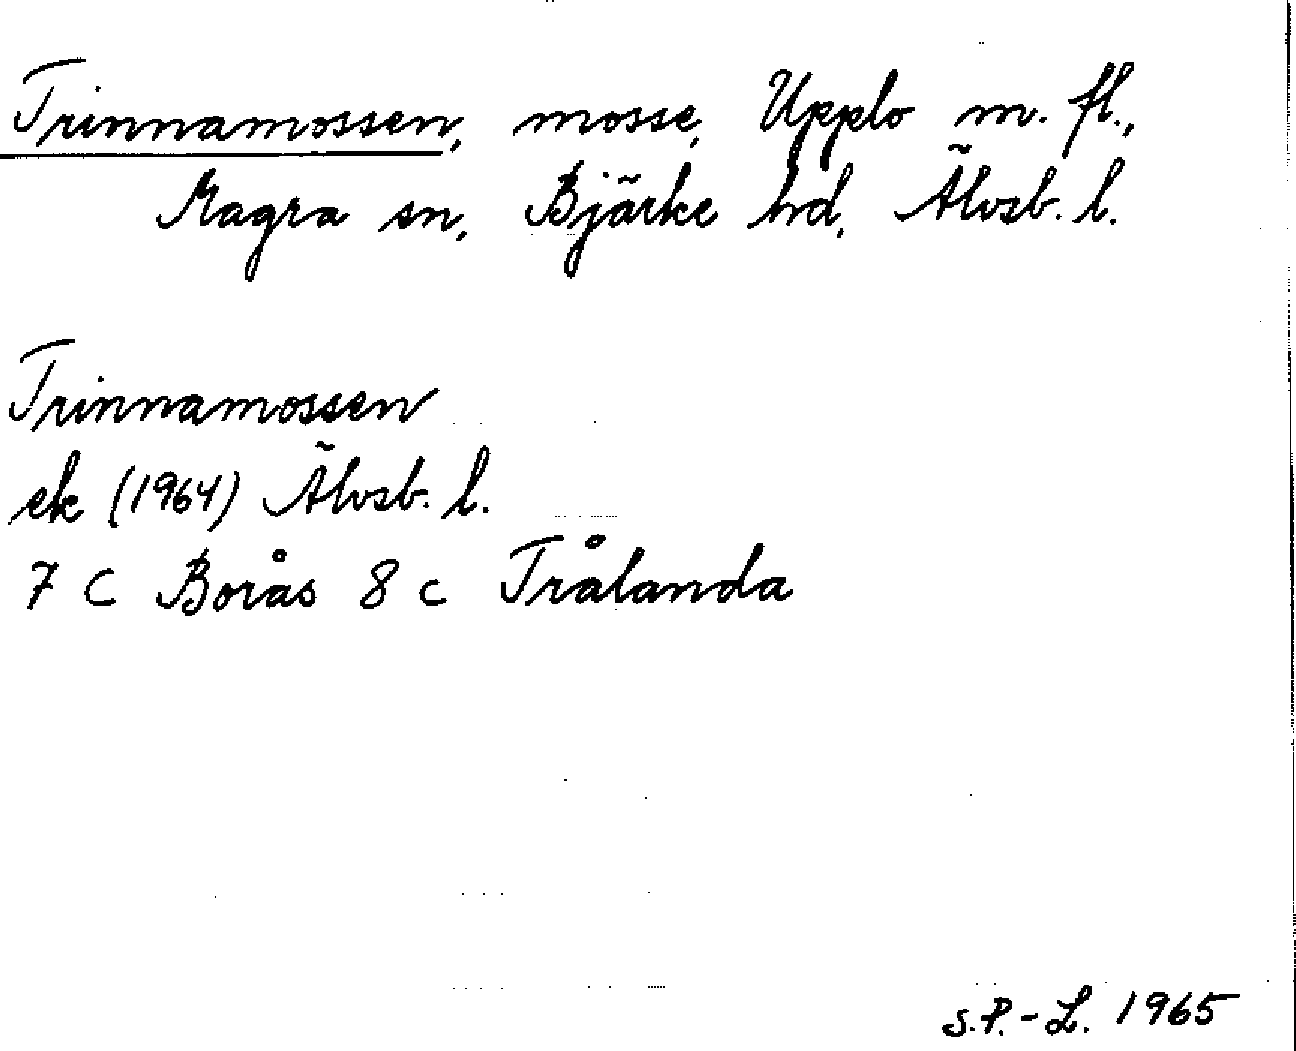 Trinnamossen, mosse, Upplo m. fl.,
Magra sn, Bjärke hd, Älvsb. l.
Trinnamossen
ek (1964) Älvsb. l.
7 C Borås 8 c Trålanda
S.P.-L. 1965